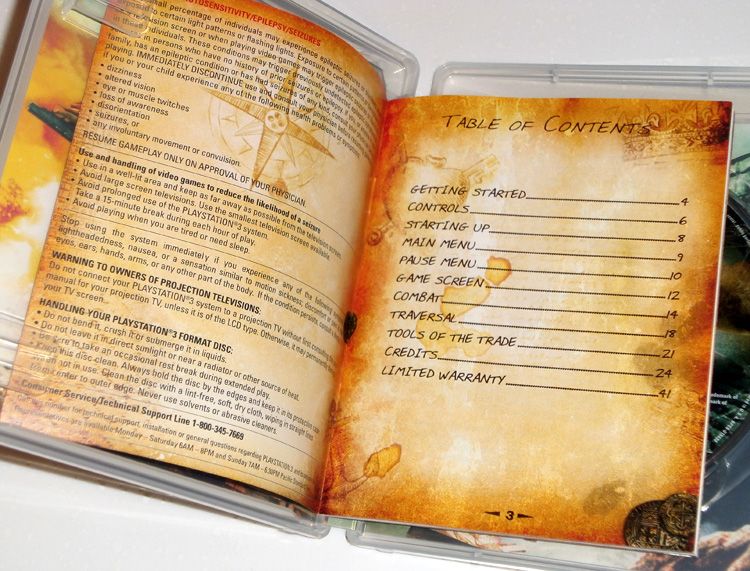 PHOTOSENSITIVITY/EPILEPSY/SEIZURES
small percentage of individuals may experience epileptic seizures
exposed to certain light patterns or flashing lights. Exposure to certain
television screen or when playing video games may trigger epileptic
in these individuals. These conditions may trigger previously undetected epileptic
in persons who have no history of prior seizures or epilepsy. If you,
family, has an epileptic condition or has had seizures of any kind, consult
playing. IMMEDIATELY DISCONTINUE use and consult your physician before
if you or your child experience any of the following health problems or symptoms:
• dizziness
• altered vision
• eye or muscle twitches
• loss of awareness
• disorientation
• seizures, or
• any involuntary movement or convulsion.
RESUME GAMEPLAY ONLY ON APPROVAL OF YOUR PHYSICIAN.
Use and handling of video games to reduce the likelihood of a seizure
• Use in a well-lit area and keep as far away as possible from the television screen.
• Avoid large screen televisions. Use the smallest television screen available.
• Avoid prolonged use of the PLAYSTATION®3 system.
• Take a 15-minute break during each hour of play.
• Avoid playing when you are tired or need sleep.
Stop using the system immediately if you experience any of the following
lightheadedness, nausea, or a sensation similar to motion sickness; discomfort or
eyes, ears, hands, arms, or any other part of the body. If the condition persists, consult
WARNING TO OWNERS OF PROJECTION TELEVISIONS:
Do not connect your PLAYSTATION®3 system to a projection TV without first consulting
manual for your projection TV, unless it is of the LCD type. Otherwise, it may permanently
your TV screen.
HANDLING YOUR PLAYSTATION®3 FORMAT DISC:
• Do not bend it, crush it or submerge it in liquids.
• Do not leave it in direct sunlight or near a radiator or other source of heat.
• Be sure to take an occasional rest break during extended play.
• Keep this disc clean. Always hold the disc by the edges and keep it in its protective case
when not in use. Clean the disc with a lint-free, soft, dry cloth, wiping in straight lines
from center to outer edge. Never use solvents or abrasive cleaners.
Consumer Service/Technical Support Line 1-800-345-7669
number for technical support, installation or general questions regarding PLAYSTATION 3 and
are available Monday – Saturday 6AM – 8PM and Sunday 7AM – 6:30PM Pacific
TABLE OF CONTENTS
GETTING STARTED 4
CONTROLS 6
STARTING UP 8
MAIN MENU 9
PAUSE MENU 10
GAME SCREEN 12
COMBAT 14
TRAVERSAL 18
TOOLS OF THE TRADE 21
CREDITS 24
LIMITED WARRANTY 41
3